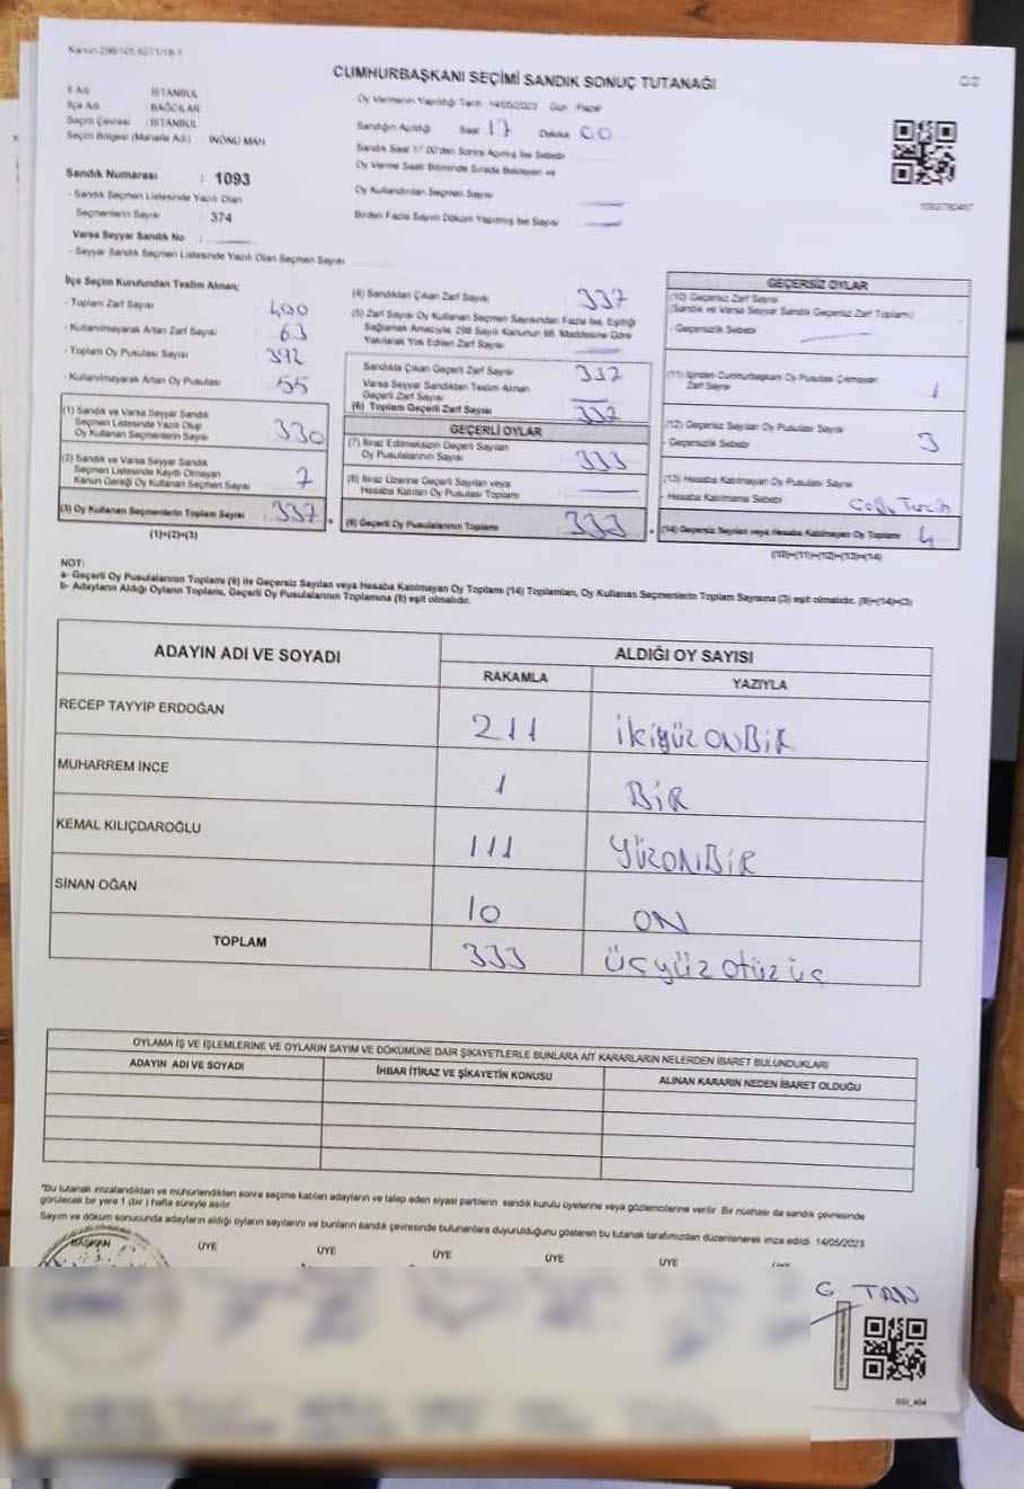 Kanun 298/105, 6271/18-1
CUMHURBAŞKANI SEÇİMİ SANDIK SONUÇ TUTANAĞI
İl Adı İSTANBUL
İlçe Adı BAĞCILAR
Seçim Çevresi : İSTANBUL
Seçim Bölgesi (Mahalle Adı) İNÖNÜ MAH
Sandık Numarası : 1093
- Sandık Seçmen Listesinde Yazılı Olan
Seçmenlerin Sayısı 374
Varsa Seyyar Sandık No :
- Seyyar Sandık Seçmen Listesinde Yazılı Olan Seçmen Sayısı
Oy Vermenin Yapıldığı Tarih 14/05/2023 Gün Pazar
Sandığın Açıldığı Saat 17 Dakika 00
Sandık Saat 17.00'den Sonra Açılmış İse Sebebi
Oy Verme Saati Bitiminde Sırada Bekleyen ve
Oy Kullandırılan Seçmen Sayısı
Birden Fazla Sayım Döküm Yapılmış İse Sayısı
İlçe Seçim Kurulundan Teslim Alınan;
- Toplam Zarf Sayısı 400
- Kullanılmayarak Artan Zarf Sayısı 63
- Toplam Oy Pusulası Sayısı 392
- Kullanılmayarak Artan Oy Pusulası 55
(1) Sandık ve Varsa Seyyar Sandık
Seçmen Listesinde Yazılı Olup
Oy Kullanan Seçmenlerin Sayısı 330
(2) Sandık ve Varsa Seyyar Sandık
Seçmen Listesinde Kayıtlı Olmayan
Kanun Gereği Oy Kullanan Seçmen Sayısı 7
(3) Oy Kullanan Seçmenlerin Toplam Sayısı 337
(1)+(2)=(3)
(4) Sandıktan Çıkan Zarf Sayısı 337
(5) Zarf Sayısı Oy Kullanan Seçmen Sayısından Fazla İse, Eşitliği
Sağlamak Amacıyla, 298 Sayılı Kanunun 98. Maddesine Göre
Yakılarak Yok Edilen Zarf Sayısı
Sandıkta Çıkan Geçerli Zarf Sayısı 337
Varsa Seyyar Sandıktan Teslim Alınan
Geçerli Zarf Sayısı
(6) Toplam Geçerli Zarf Sayısı 337
GEÇERLİ OYLAR
(7) İtiraz Edilmeksizin Geçerli Sayılan
Oy Pusulalarının Sayısı 333
(8) İtiraz Üzerine Geçerli Sayılan veya
Hesaba Katılan Oy Pusulası Toplamı
(9) Geçerli Oy Pusulalarının Toplamı 333
GEÇERSİZ OYLAR
(10) Geçersiz Zarf Sayısı
(Sandık ve Varsa Seyyar Sandık Geçersiz Zarf Toplamı)
- Geçersizlik Sebebi
(11) İçinden Cumhurbaşkanı Oy Pusulası Çıkmayan
Zarf Sayısı 1
(12) Geçersiz Sayılan Oy Pusulası Sayısı
- Geçersizlik Sebebi 3
(13) Hesaba Katılmayan Oy Pusulası Sayısı
- Hesaba Katılmama Sebebi
(14) Geçersiz Sayılan veya Hesaba Katılmayan Oy Toplamı 4
(10)+(11)+(12)+(13)=(14)
NOT:
a- Geçerli Oy Pusulalarının Toplamı (9) ile Geçersiz Sayılan veya Hesaba Katılmayan Oy Toplamı (14) Toplamları, Oy Kullanan Seçmenlerin Toplam Sayısına (3) eşit olmalıdır. (9)+(14)=(3)
b- Adayların Aldığı Oyların Toplamı, Geçerli Oy Pusulalarının Toplamına (9) eşit olmalıdır.
ADAYIN ADI VE SOYADI ALDIĞI OY SAYISI
RAKAMLA YAZIYLA
RECEP TAYYİP ERDOĞAN 211 İkiyüz ONBİR
MUHARREM İNCE 1 BİR
KEMAL KILIÇDAROĞLU 111 YÜZONBİR
SİNAN OĞAN 10 ON
TOPLAM 333 üçyüz otüz üç
OYLAMA İŞ VE İŞLEMLERİNE VE OYLARIN SAYIM VE DÖKÜMÜNE DAİR ŞİKAYETLERLE BUNLARA AİT KARARLARIN NELERDEN İBARET BULUNDUKLARI
ADAYIN ADI VE SOYADI İHBAR İTİRAZ VE ŞİKAYETİN KONUSU ALINAN KARARIN NEDEN İBARET OLDUĞU
*Bu tutanak imzalandıktan ve mühürlendikten sonra seçime katılan adayların ve talep eden siyasi partilerin sandık kurulu üyelerine veya gözlemcilerine verilir. Bir nüshası da sandık çevresinde
görülecek bir yere 1 (bir) hafta süreyle asılır.
Sayım ve döküm sonucunda adayların aldığı oyların sayılarını ve bunların sandık çevresinde bulunanlara duyurulduğunu gösteren bu tutanak tarafımızdan düzenlenerek imza edildi. 14/05/2023
BAŞKAN ÜYE ÜYE ÜYE ÜYE ÜYE